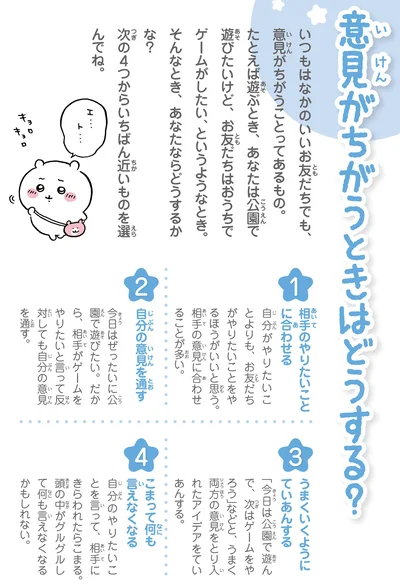 意見がちがうときはどうする?
いつもはなかのいいお友だちでも、
意見がちがうことってあるもの。
たとえば遊ぶとき、あなたは公園で
遊びたいけど、お友だちはおうちで
ゲームがしたい、というようなとき。
そんなとき、あなたならどうするか
な?
次の4つからいちばん近いものを選
んでね。
エ…
ト…
キョロ
キョロ
1
相手のやりたいこと
に合わせる
自分がやりたいこ
とよりも、お友だち
がやりたいことをや
るほうがいいと思う。
相手の意見に合わせ
ることが多い。
2
自分の意見を通す
今日はぜったいに公
園で遊びたい。だか
ら、相手がゲームを
やりたいと言って反
対しても自分の意見
を通す。
3
うまくいくように
ていあんする
「今日は公園で遊ん
で、次はゲームをや
ろう」などと、うまく
両方の意見をとり入
れたアイデアをてい
あんする。
4
こまって何も
言えなくなる
自分のやりたいこ
とを言って、相手に
きらわれたらこまる。
頭の中がグルグルし
て何も言えなくなる
かもしれない。